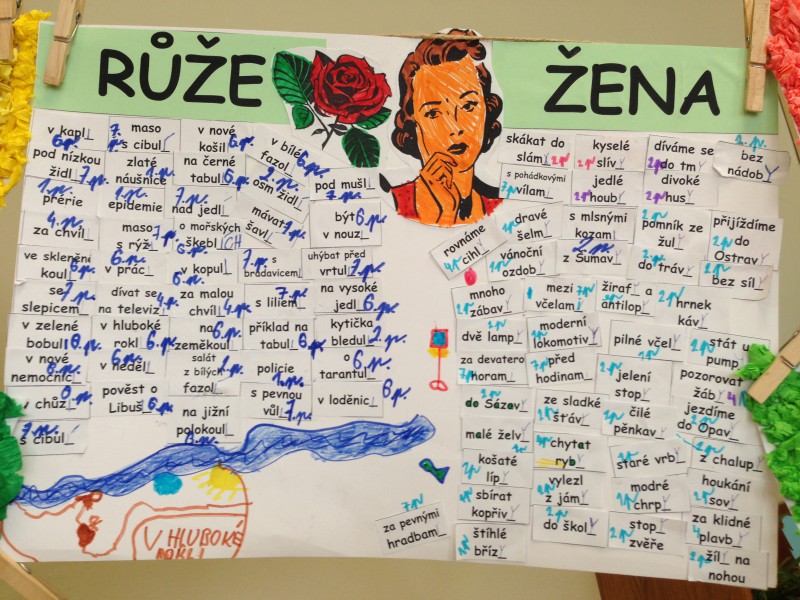 RŮŽE
ŽENA
v kapl_
6.p.
maso
s cibul_
7.p.
v nové
košil_
6.p.
v bílé
fazol_
6.p.
pod nízkou
židl_
7.p.
zlaté
náušnice
1.p.
na černé
tabul_
6.p.
osm židl_
2.p.
pod mušl_
7.p.
prérie
1.p.
epidemie
1.p.
nad jedl_
7.p.
mávat
šavl_
7.p.
být
v nouz_
6.p.
za chvíl_
4.p.
maso
s rýž_
7.p.
o mořských
škebl_ CH
ve sklenění
koul_
6.p.
v prác_
6.p.
v kopul_
6.p.
s
bradavicem_
7.p.
uhýbat před
vrtul_
7.p.
se
slepicem_
7.p.
dívat se
na televiz_
4.p.
za malou
chvíl_
4.p.
s liliem_
7.p.
na vysoké
jedl_
6.p.
v zelené
bobul_
6.p.
v hluboké
rokl_
6.p.
na
zeměkoul_
6.p.
příklad na
tabul_
6.p.
kytička
bledul_
2.p.
v nové
nemocnic_
6.p.
v neděl_
6.p.
salát
z bílých
fazol_
2.p.
policie
1.p.
o
tarantul_
6.p.
v chůz_
6.p.
pověst o
Libuš_
6.p.
na jižní
polokoul_
6.p.
s pevnou
vůl_
7.p.
v loděnic_
6.p.
s cibul_
7.p.
V HLUBOKÉ
ROKLI
skákat do
slám_y
2p
kyselé
slív_y
díváme se
do tm_y
2p
bez
nádob_y
2.p.
s pohádkovými
vílam_
7p
jedlé
houb_y
divoké
hus_y
2p
rovnáme
cihl_y
4p
dravé
šelm_y
1p
s mlsnými
kozam_
7p
pomník ze
žul_y
2p
přijíždíme
do
Ostrav_y
2p
vánoční
ozdob_y
z Šumav_y
2p
do tráv_y
2p
bez síl_y
2p
mnoho
zábav_y
2p
mezi
včelam_i
7p
žiraf_y a
antilop_y
hrnek
káv_y
2p
dvě lamp_y
moderní
lokomotiv_y
pilné včel_y
stát u
pump_y
2p
za devatero
horam_
7p
před
hodinam_
7p
jelení
stop_y
pozorovat
žáb_y
4
do Sázav_y
2p
ze sladké
šťáv_y
2p
čilé
pěnkav_y
jezdíme
do Opav_y
2p
malé želv_y
chytat
ryb_y
staré vrb_y
z chalup_y
2p
košaté
líp_y
vylezl
z jám_y
2p
modré
chrp_y
houkání
sov_y
sbírat
kopřiv_y
do škol_y
2p
stop_y
zvěře
za klidné
plavb_y
štíhlé
bříz_y
žíl_y na
nohou
za pevnými
hradbam_
7p